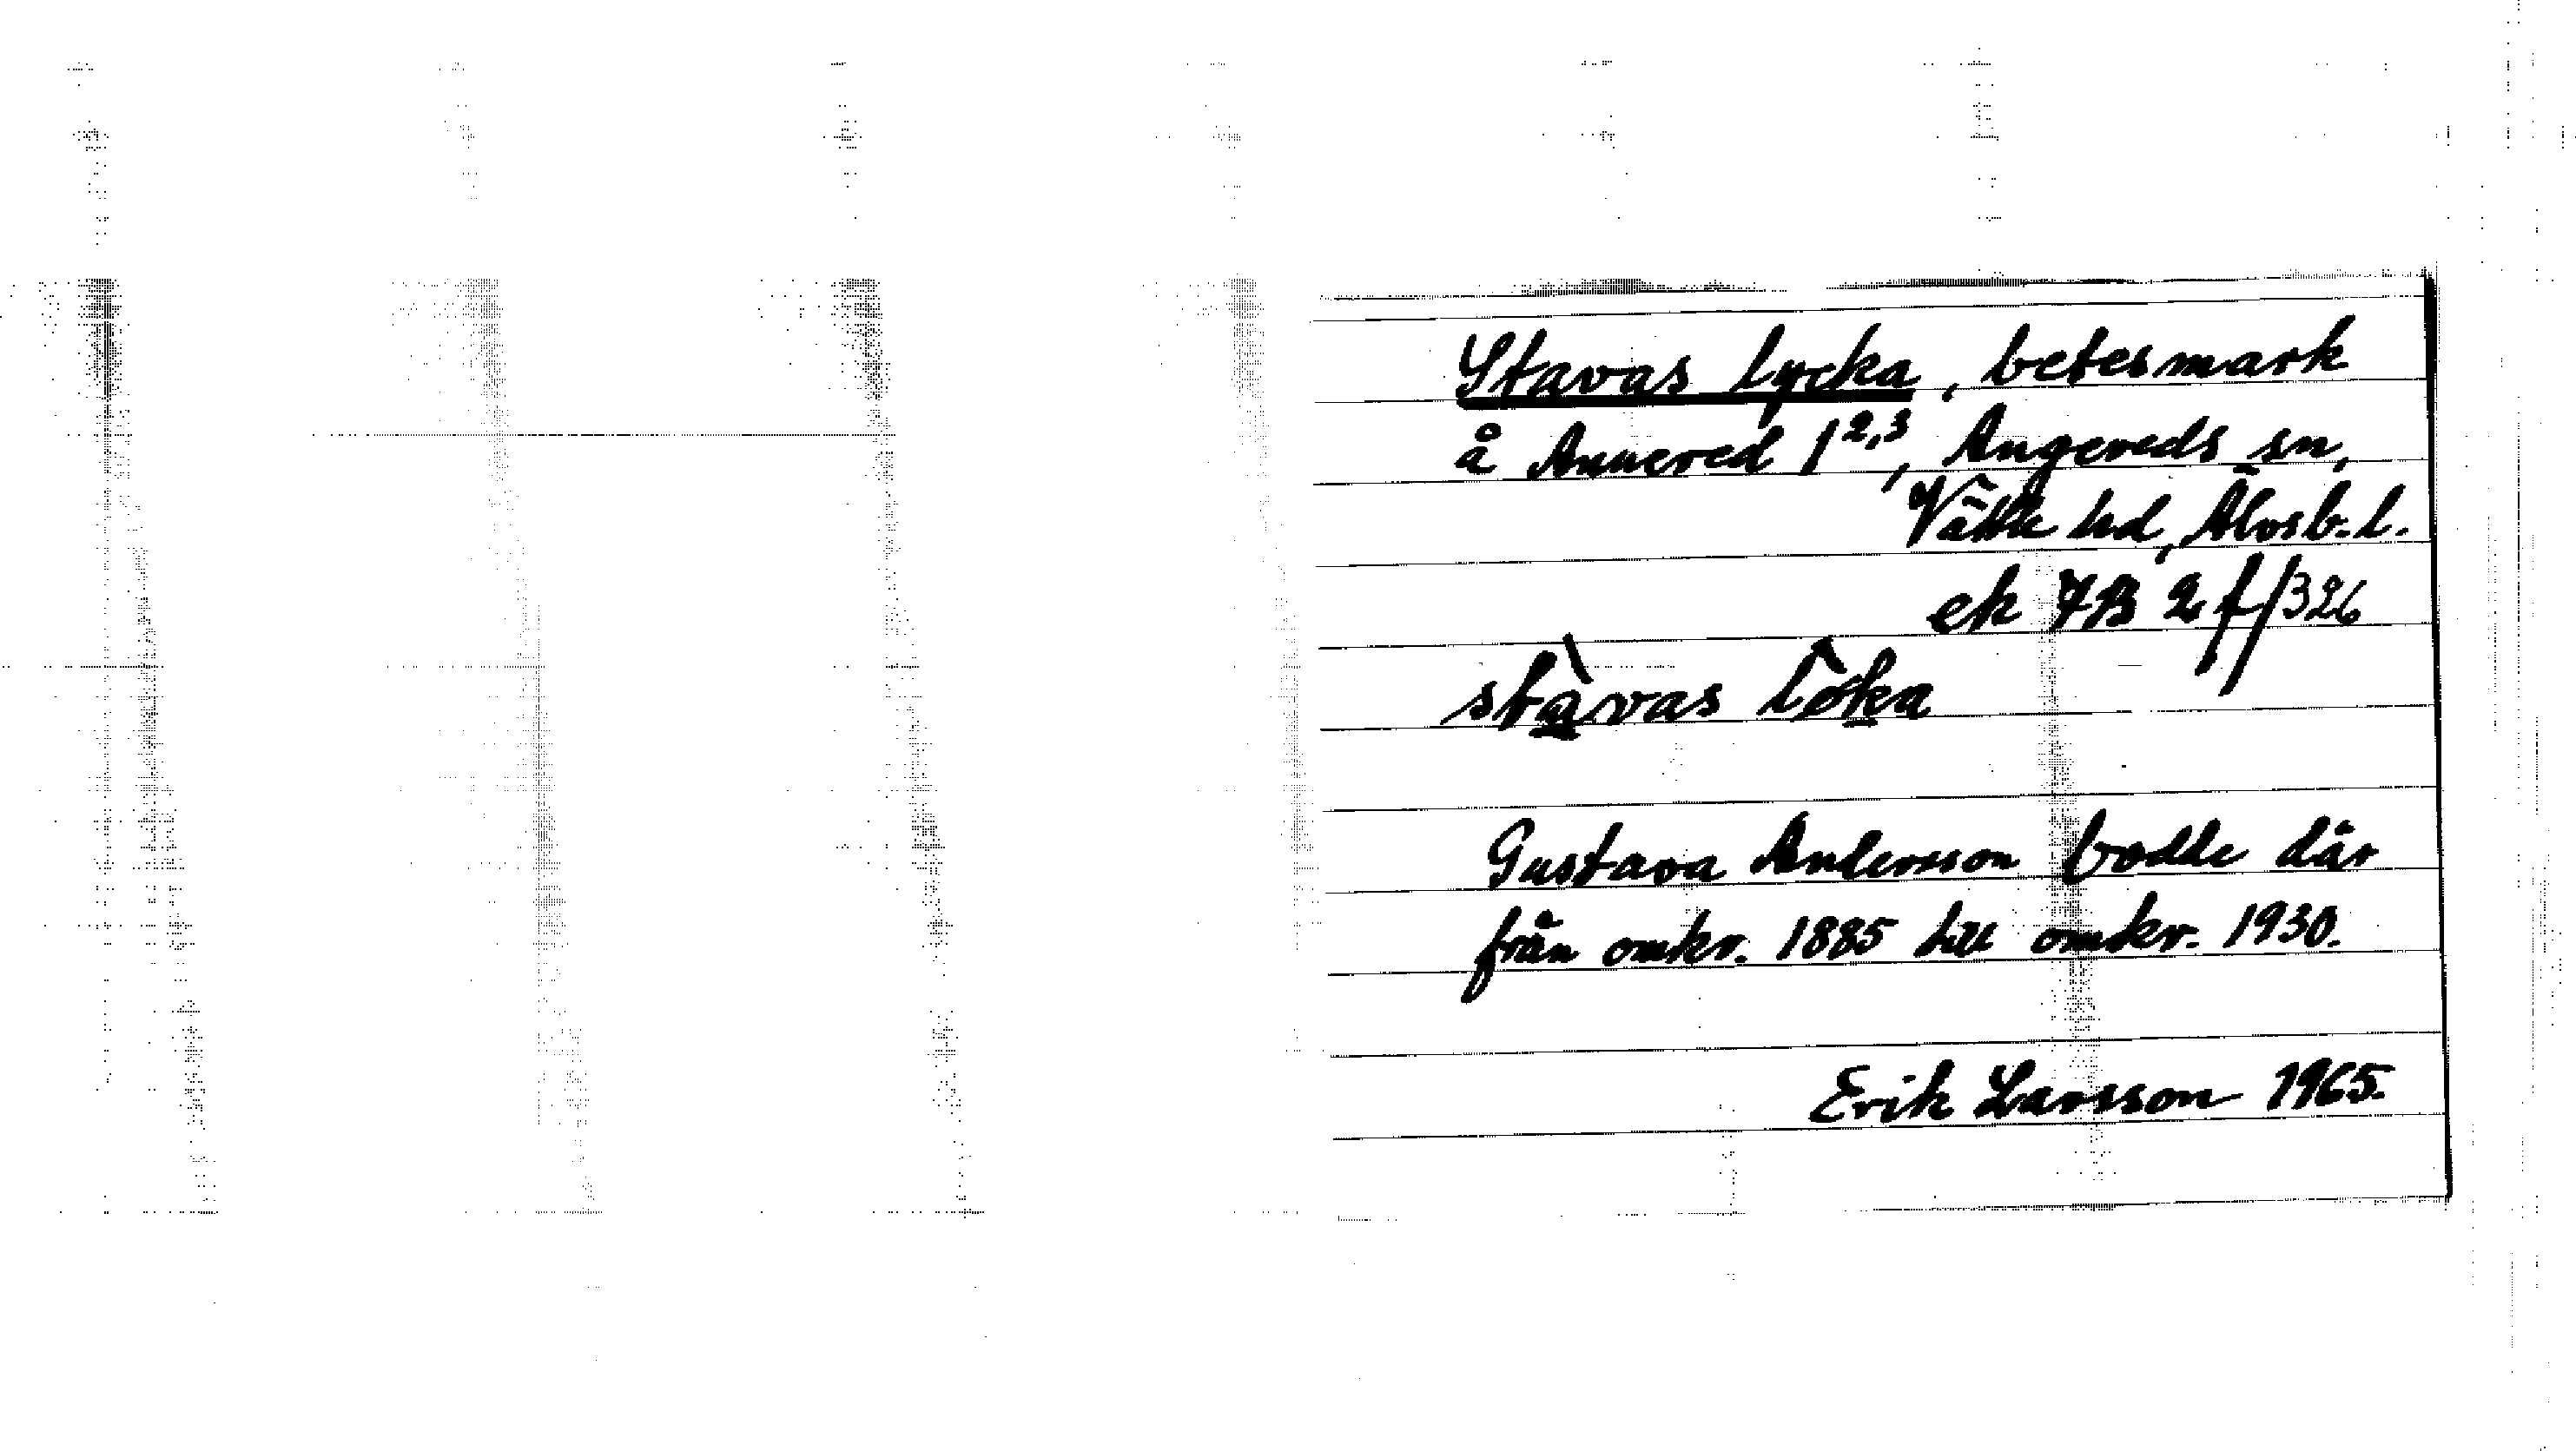 Stavas lycka, betesmark
å Annered 1 2,3, Angereds sn,
Vättle hd, Älvsb. l.
ek 7B 2 f/326
stàvas lö̀ka
Gustava Andersson bodde där
från omkr. 1885 till omkr. 1930.
Erik Larsson 1965.